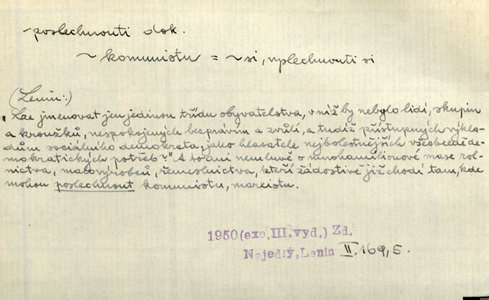 poslechnouti dok.
~ komunistu = ~ si,
(Lenin:)
"Lze jmenovat jen jedinou třídu obyvatelstva, v níž by nebylo lidí, skupin
a kroužků, nespokojených bezprávím a zvůlí, a tudíž přístupných výkla-
dům sociálního demokrata, jako hlasatele nejbolestnějších všeobecně de-
mokratických potřeb?" A to ani nemluvě o mnohamilionové mase rol-
nictva, malovýrobců, řemeslnictva, kteří žádostivě již chodí tam, kde
mohou poslechnout komunistu, marxistu.
1950(exc.III.vyd.) Zd.
Nejedlý, Lenin II. 169,5.